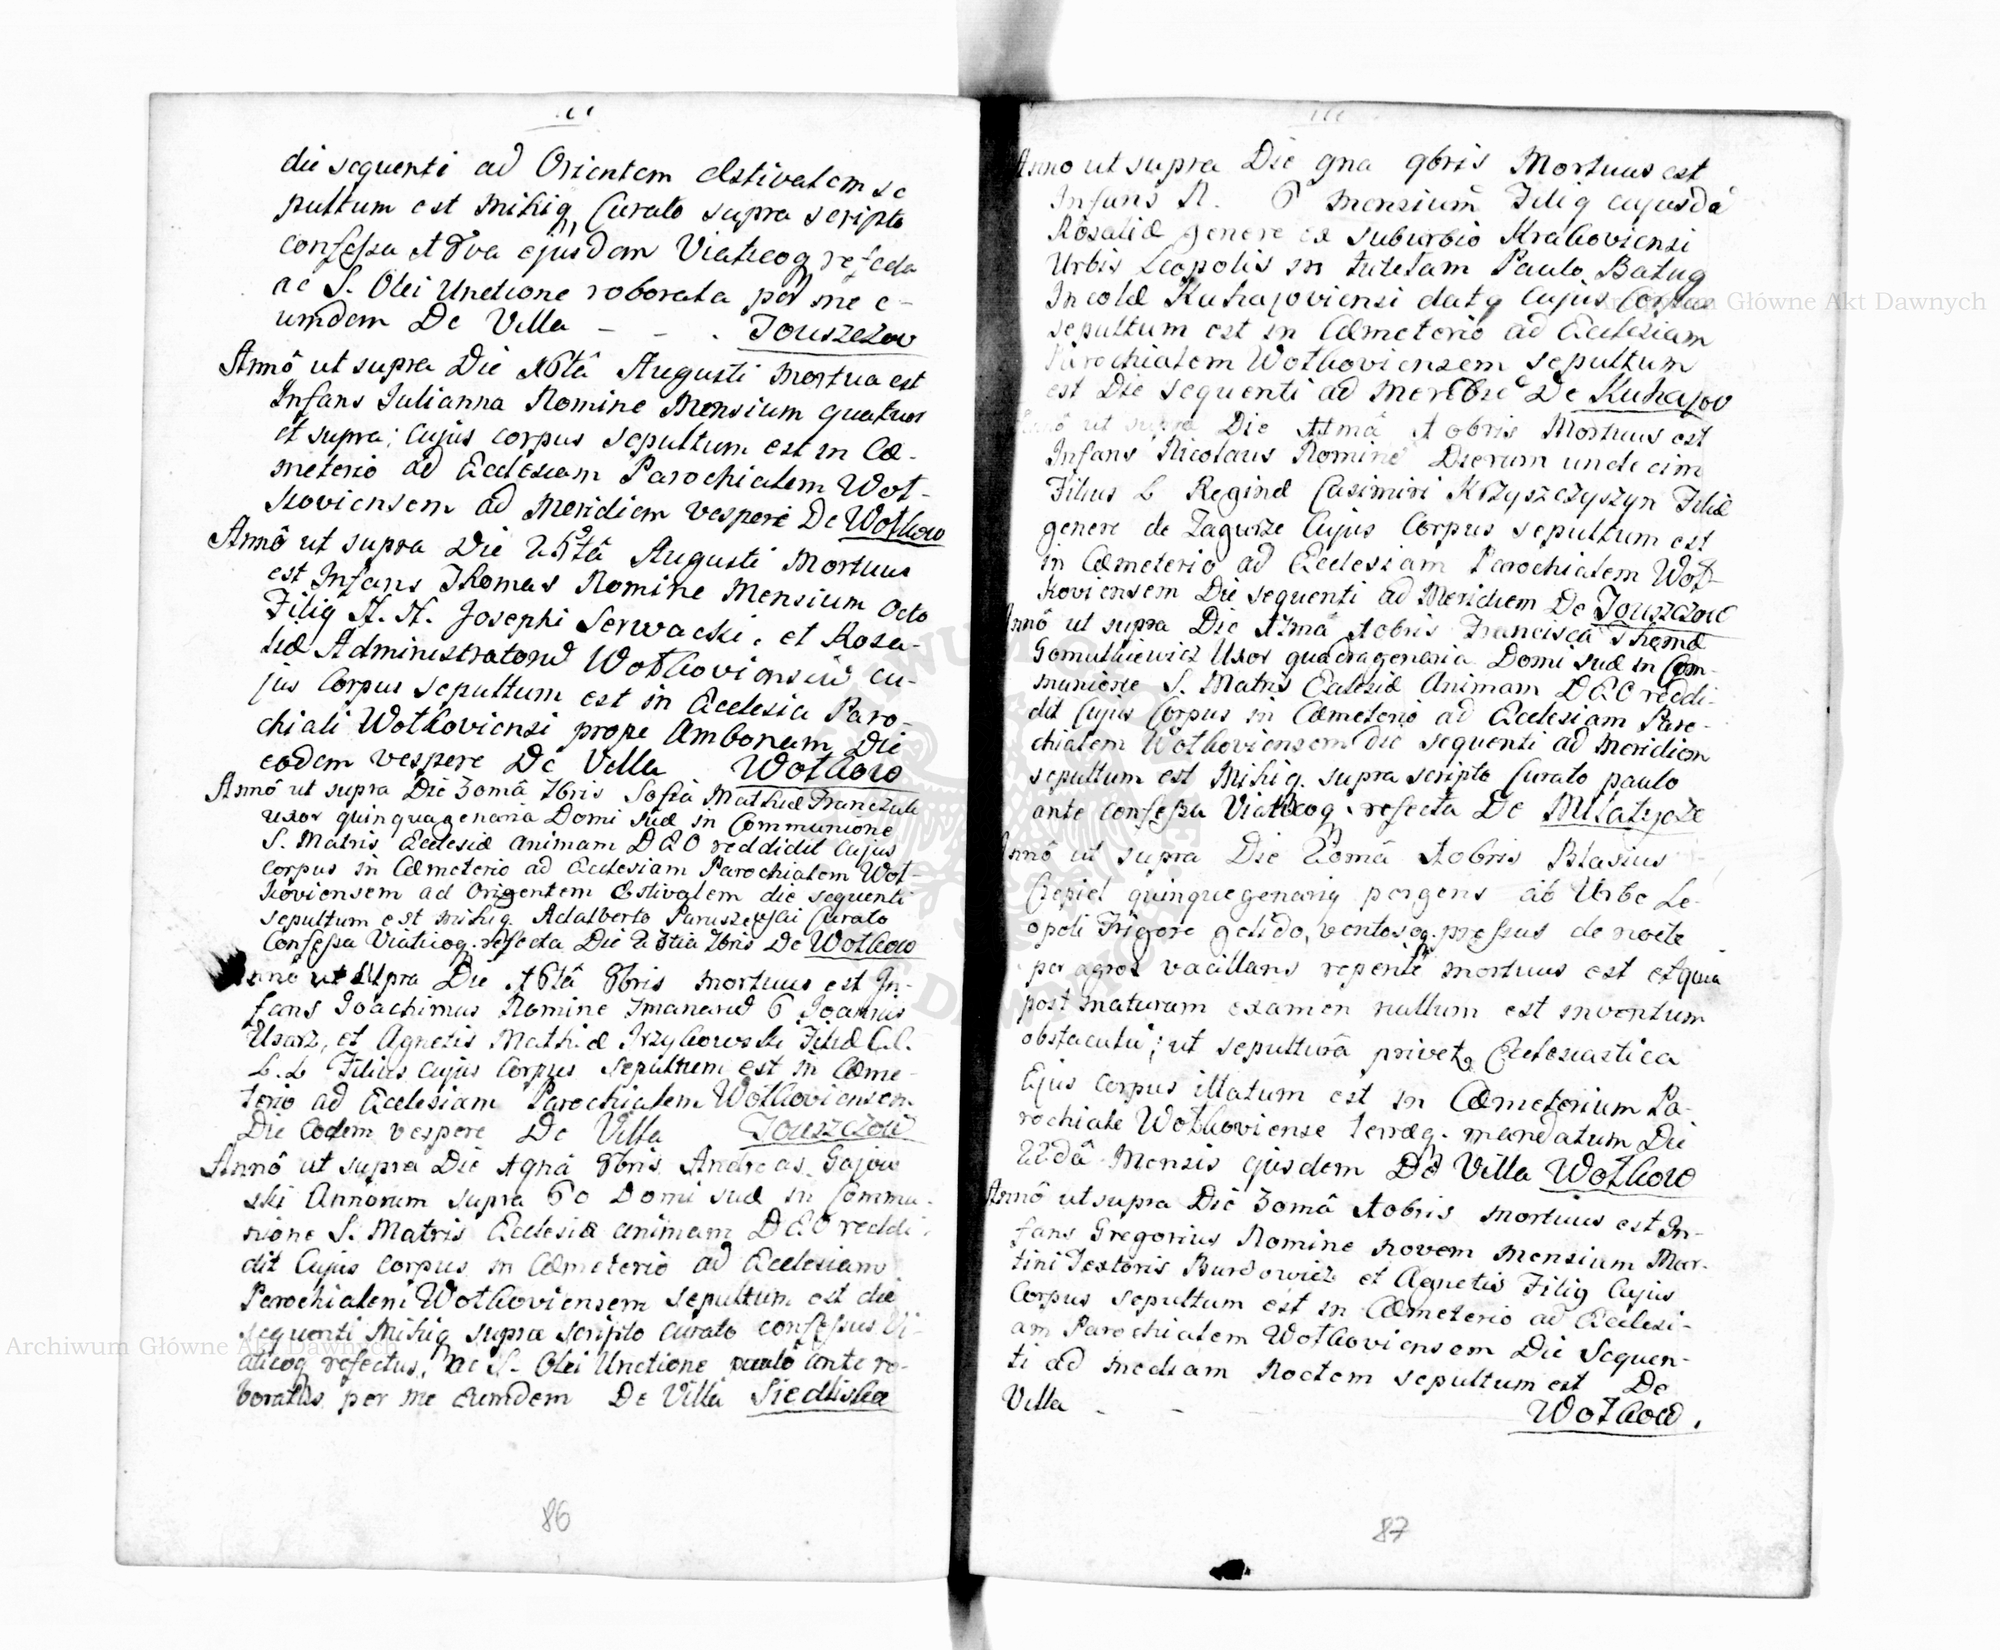 die sequenti ad Orientem Æstivalem se
pultum est Mihiq Curato supra scripto
confessa et ejusdem Viaticoq refecta
ac S. Olei Unctione roborata per me e-
umdem De Villa - - . Touszczow
Annô ut supra Die 16tâ Augusti mortua est
Infans Julianna Nomine Mensium quatuor
et supra; Cujus corpus sepultum est in Cæ-
meterio ad Ecclesiam Parochialem Woł-
koviensem ad Meridiem vespere De Wołkow
Annô ut supra Die 25tâ Augusti Mortuus
est Infans Thomas Nomine Mensium Octo
Filig A. A. Josephi Serwacki, et Rosa-
liæ Administratorū Wołkoviensiū cu-
jus Corpus sepultum est in Ecclesia Paro-
chiali Wołkoviensi prope Ambonam Die
eodem vespere De Villa Wołkow
Annô ut supra Die 30mâ 7bris Sofia Mathiæ Franczuk
uxor quinquagenaria Domi suæ in Communione
S. Matris Ecclesiæ animam DEO reddidit Cujus
corpus in Cæmeterio ad Ecclesiam Parochialem Woł-
koviensem ad Orientem Estivalem die sequenti
sepultum est mihiq. Adalberto Curato
Confessa Viaticoq. refecta Die 7bris De Wołkow
Annô ut supra Die 16tâ 8bris mortuus est In-
fans Joachimus Nomine 6 Joannis
Usarz, et Agnetis Mathiæ Trzykowski Filiæ C.C.
L. L Filius cujus Corpus sepultum est in Cæme-
terio ad Ecclesiam Parochialem Wołkoviensem
Die Eodem vespere De Villa Touszczow
Annô ut supra Die 19nâ 8bris Andreas Gajow
ski Annorum supra 60 Domi suæ in Commu-
nione S. Matris Ecclesiæ animam DEO reddi-
dit Cujus corpus in Cæmeterio ad Ecclesiam
Parochialem Wołkoviensem sepultum est die
sequenti Mihiq supra scripto curato confessus Vi-
aticoq refectus, ac S. Olei Unctione paulo ante ro-
boratus per me eumdem De Villa Siedliska
86
Anno ut supra Die 9na 9bris Mortuus est
Infans N. 6 mensium Filig cujusdā
Rosaliæ genere ex suburbio Krakoviensi
Urbis Leopolis in tutelam Paulo Baług
Incolæ Kuhajoviensi datq Cujus Corpus
sepultum est in Cæmeterio ad Ecclesiam
Parochialem Wołkoviensem sepultum
est Die sequenti ad Meridie De Kuhajow
Annô ut supra Die 11mâ 10bris Mortuus est
Infans Nicolaus Nomine Dierum undecim
Filius L Reginæ Casimiri Krzyszczyszyn Filiæ
genere de Zagurze Cujus Corpus sepultum est
in Cæmeterio ad Ecclesiam Parochialem Woł-
koviensem Die sequenti ad Meridiem De Touszczow
Annô ut supra Die 10bris Francisca Thomæ
Gomulkiewicz Uxor quadragenaria Domi suæ in Com-
munione S. Matris Ecclesiæ Animam DEO reddi-
dit Cujus Corpus in Cæmeterio ad Ecclesiam Paro-
chialem Wołkoviensem die sequenti ad Meridiem
sepultum est Mihiq. supra scripto Curato paulo
ante confessa Viaticoq. refecta De Miłatycze
Annô ut supra Die 20mâ 10bris Blasius
Czepiel quinquegenariq pergens ab Urbe Le-
opoli Frigore gelido, ventosoq. pressus de nocte
per agros vacillans repente mortuus est et quia
post maturam examen nullum est inventum
obstaculū, ut sepulturâ privetq Ecclesiastica
Ejus corpus illatum est in Cæmeterium Pa-
rochiale Wołkoviense terræq. mandatum Die
22dâ Mensis ejusdem De Villa Wołkow
Annô ut supra Die 30mâ 10bris mortuus est In-
fans Gregorius Nomine novem mensium Mar-
tini Textoris Burdowicz et Agnetis Filiq Cujus
Corpus sepultum est in Cæmeterio ad Ecclesi-
am Parochialem Wołkoviensem Die Sequen-
ti ad mediam Noctem sepultum est De
Villa - - Wołkow.
87
Archiwum Główne Akt Dawnych
Archiwum Główne Akt Dawnych